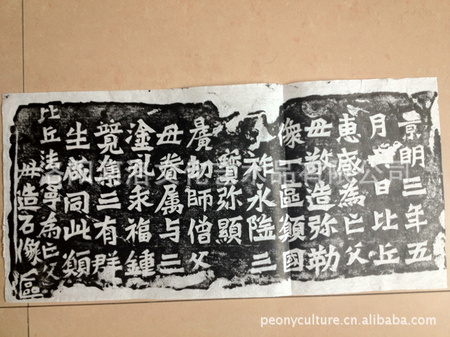 景明三年五
月日比丘
惠感為亡父
母敬造弥勒
像一區願國
祚永隆三
寶弥顯
曠劫師僧父
母眷属与三
塗永乖福鍾
竟集三有群
生咸同此願
比丘法寧為亡父
母造石像區
有限公司
peonyculture.cn.alibaba.com